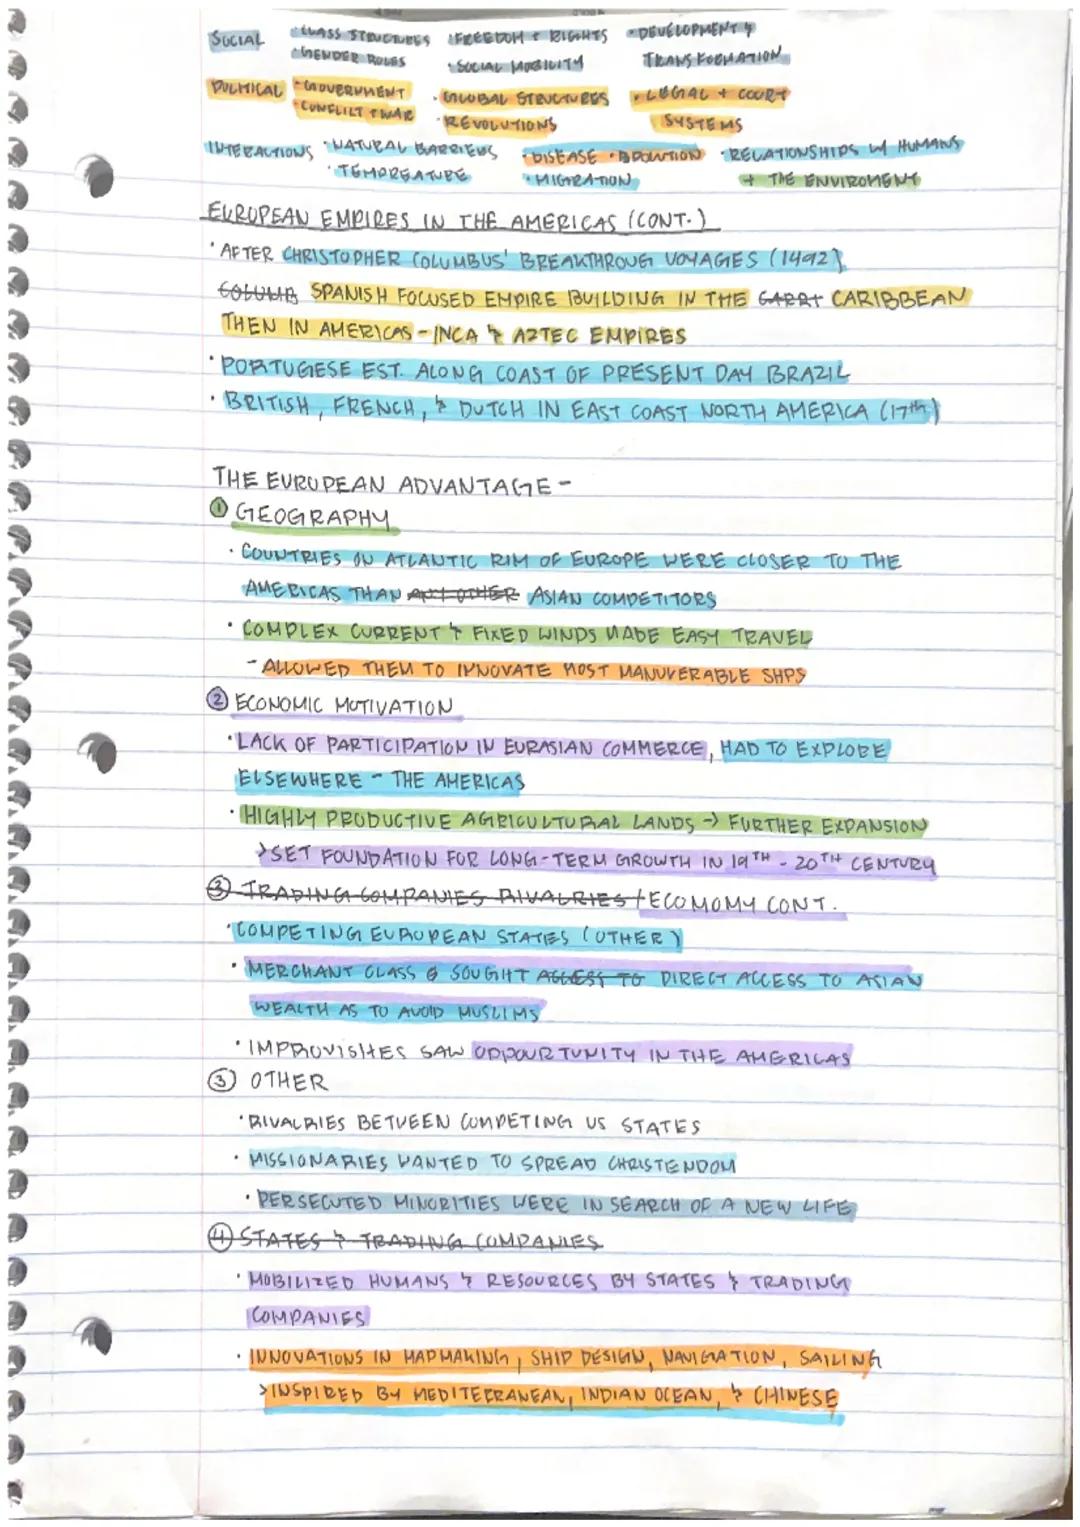 SOCIAL • CLASS STRUCTURES • FREEDOM & RIGHTS • DEVELOPMENT &
• GENDER ROLES • SOCIAL MOBILITY TRANSFORMATION
POLITICAL • GOVERNMENT • GLOBAL STRUCTURES • LEGAL + COURT
• CONFLICT & WAR • REVOLUTIONS SYSTEMS
INTERACTIONS • NATURAL BARRIERS • DISEASE • POLUTION • RELATIONSHIPS W/ HUMANS
• TEMPREATURE • MIGRATION + THE ENVIROMENT
EUROPEAN EMPIRES IN THE AMERICAS (CONT.)
• AFTER CHRISTOPHER COLUMBUS' BREAKTHROUGH VOYAGES (1492)
COLUMB SPANISH FOCUSED EMPIRE BUILDING IN THE CARRI CARIBBEAN
THEN IN AMERICAS - INCA & AZTEC EMPIRES
• PORTUGESE EST. ALONG COAST OF PRESENT DAY BRAZIL
• BRITISH, FRENCH, & DUTCH IN EAST COAST NORTH AMERICA (17th)
THE EUROPEAN ADVANTAGE -
① GEOGRAPHY
• COUNTRIES ON ATLANTIC RIM OF EUROPE WERE CLOSER TO THE
AMERICAS THAN ANY OTHER ASIAN COMPETITORS
• COMPLEX CURRENT & FIXED WINDS MADE EASY TRAVEL
- ALLOWED THEM TO INNOVATE MOST MANUVERABLE SHPS
② ECONOMIC MOTIVATION
• LACK OF PARTICIPATION IN EURASIAN COMMERCE, HAD TO EXPLORE
ELSEWHERE - THE AMERICAS
• HIGHLY PRODUCTIVE AGRICULTURAL LANDS → FURTHER EXPANSION
> SET FOUNDATION FOR LONG-TERM GROWTH IN 19TH - 20TH CENTURY
③ TRADING COMPANIES RIVALRIES / ECOMOMY CONT.
• COMPETING EUROPEAN STATES (OTHER)
• MERCHANT CLASS SOUGHT ACCESS TO DIRECT ACCESS TO ASIAN
WEALTH AS TO AVOID MUSLIMS
• IMPROVISHES SAW OPPOURTUNITY IN THE AMERICAS
③ OTHER
• RIVALRIES BETWEEN COMPETING US STATES
• MISSIONARIES WANTED TO SPREAD CHRISTENDOM
• PERSECUTED MINORITIES WERE IN SEARCH OF A NEW LIFE
④ STATES & TRADING COMPANIES
• MOBILIZED HUMANS & RESOURCES BY STATES & TRADING
COMPANIES
• INNOVATIONS IN MAPMAKING, SHIP DESIGN, NAVIGATION, SAILING
> INSPIRED BY MEDITERRANEAN, INDIAN OCEAN, & CHINESE